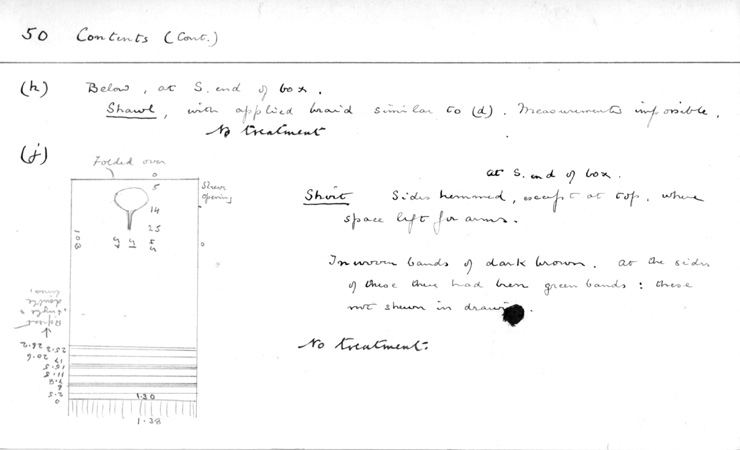 50 Contents (Cont.)
(h) Below, at S. end of box.
Shawl, with applied braid similar to (d). Measurements impossible.
No treatment
(j)
Folded over
0
5
14
25
Sleeve opening
at S. end of box.
Shirt Sides hemmed, except at top, where
space left for arms.
Inwoven bands of dark brown. At the sides
of these there had been green bands: these
not shewn in
No treatment.
108
0
25.2
20.6
17
15.5
11.5
6
5.2
0
1.30
1.38